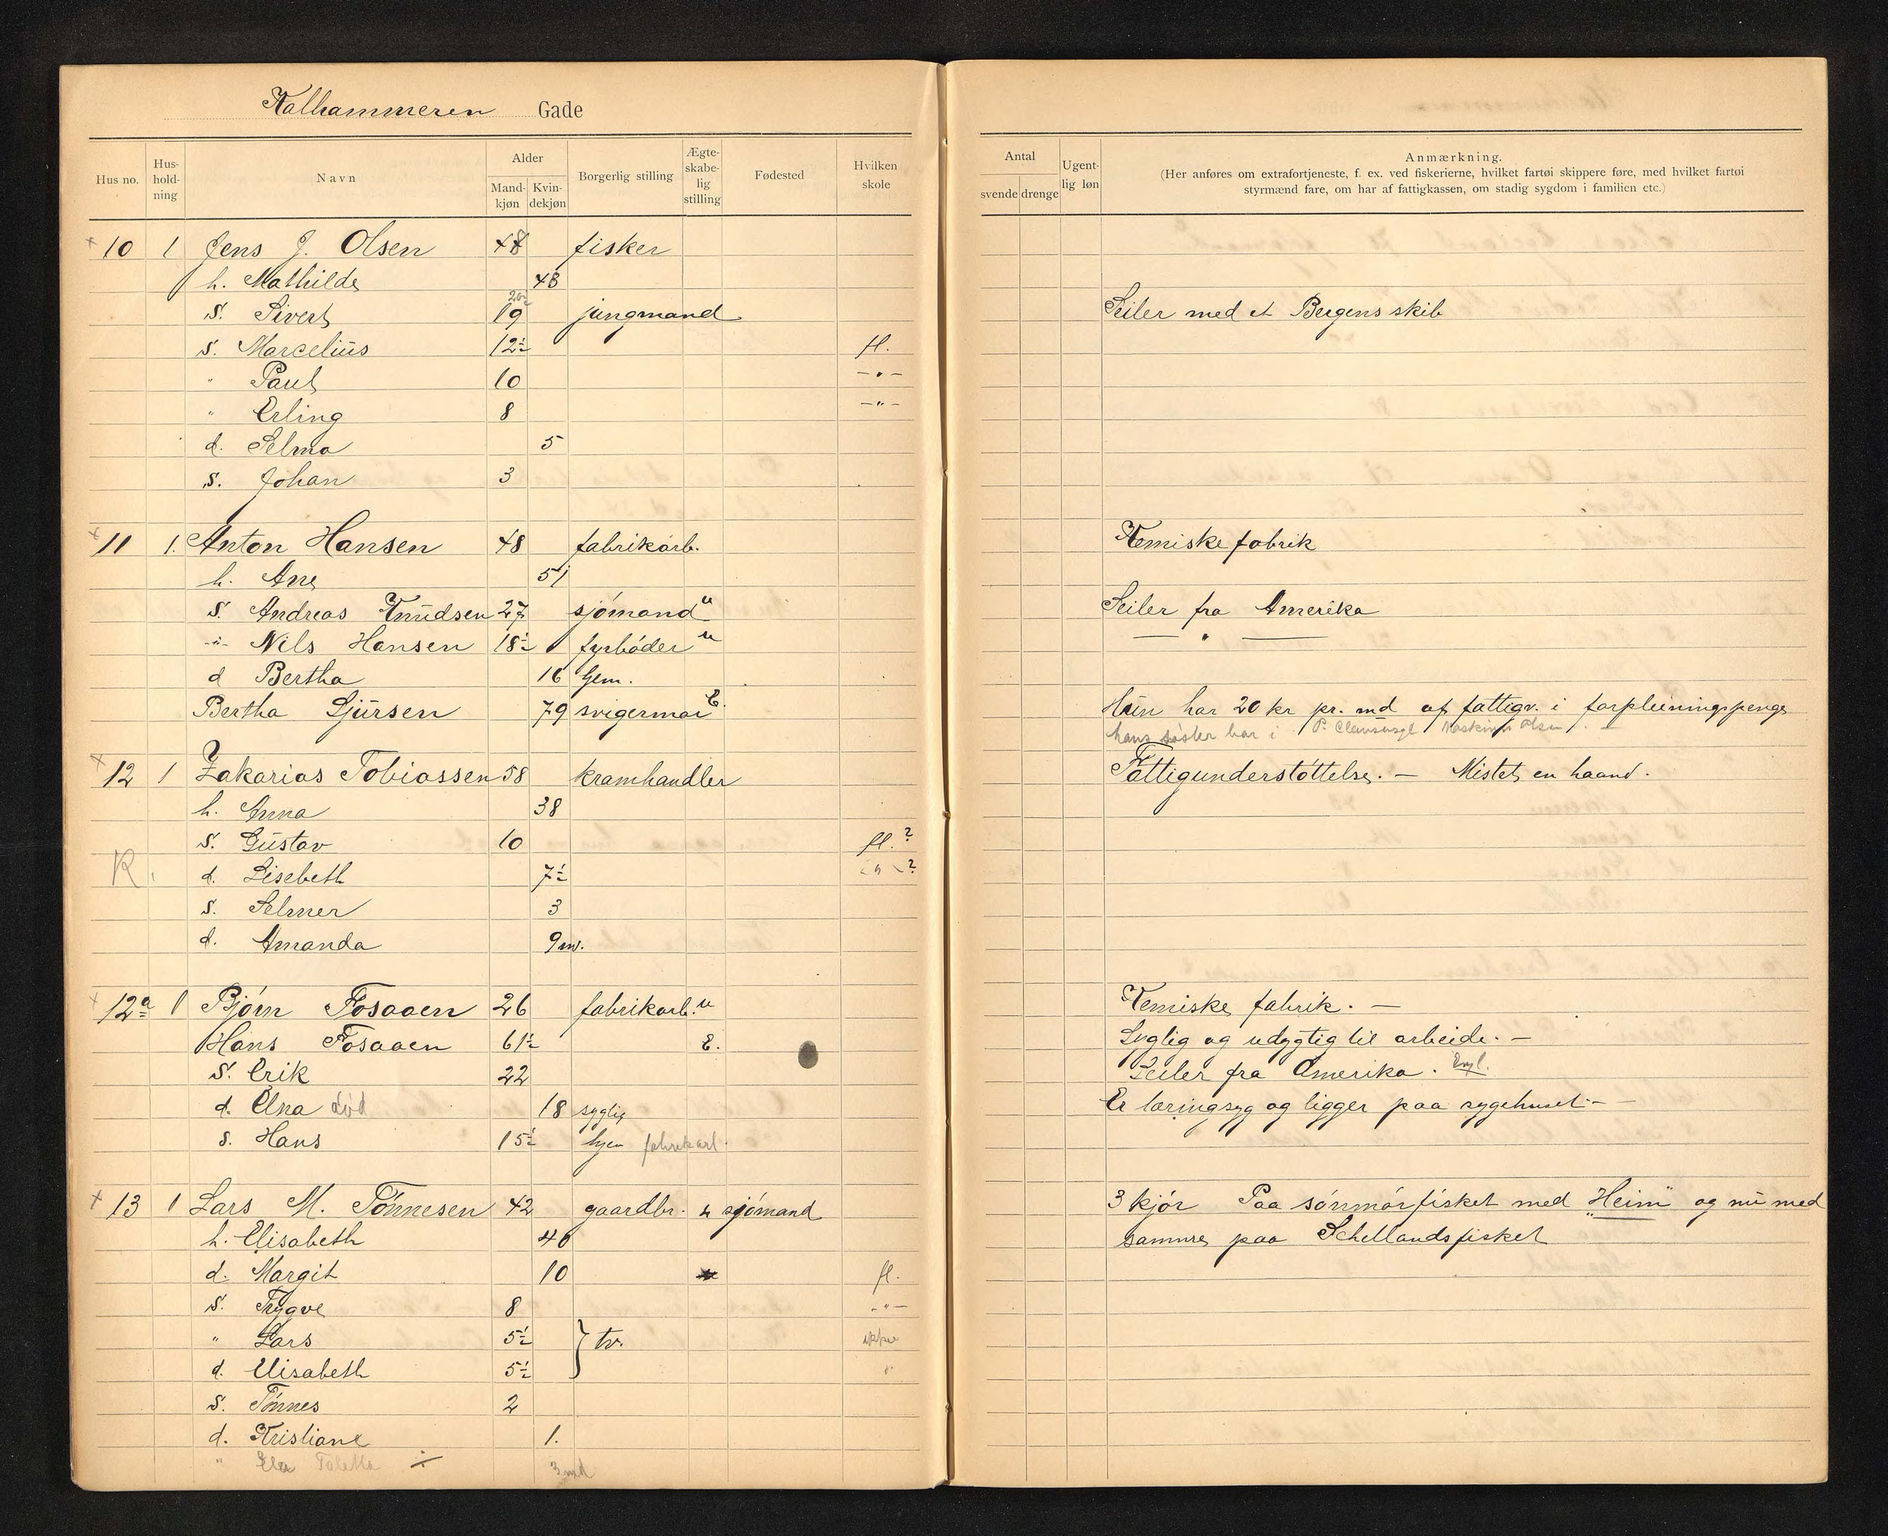 Kalhammeren Gade
Hus no. Hus-hold-ning Navn Alder Mand-kjøn Kvin-dekjøn Borgerlig stilling Ægte-skabe-lig stilling Fødested Hvilken skole
Antal svende drenge Ugent-lig løn Anmærkning.
(Her anføres om extrafortjeneste, f. ex. ved fiskerierne, hvilket fartøi skippere føre, med hvilket fartøi
styrmænd fare, om har af fattigkassen, om stadig sygdom i familien etc.)
10 1 Jens J. Olsen 48 fisker
h. Mathilde 48
S. Sivert 19 jungmand Seiler med et Bergens skib
S. Marcelius 12½ fl.
" Paul 10 -"-
" Erling 8 -"-
d. Selma 5
S. Johan 3
11 1. Anton Hansen 48 fabrikarb. Kemiske fabrik
h. Ane 51
S. Andreas Knudsen 27 sjómand u Seiler fra Amerika
-"- Nils Hansen 18½ fyrbóder u — " —
d Bertha 16 hjem.
Bertha Sjursen 79 svigermor E. Hun har 20 kr pr. md af fattigv. i forpleiningspenge
hans søster bor i P. Clausensgt
12 1 Zakarias Tobiassen 58 kramhandler Fattigunderstóttelse. — Mistet en haand.
h. Anna 38
S. Gustav 10 fl.?
R. d. Lisebeth 7½ -"-?
S. Selmer 3
d. Amanda 9 m.
12a 1 Bjórn Fosaaen 26 fabrikarb. u Kemiske fabrik. —
Hans Fosaaen 61½ E. Syglig og udygtig til arbeide. —
S. Erik 22 Seiler fra Amerika. Engl.
d. Elna død 18 syglig Er tæringsyg og ligger paa sygehuset. —
S. Hans 15½ hjem fabrikarb.
13 1 Lars M. Tónnesen 42 gaardbr. & sjómand 3 kjór Paa sónmórfisket med "Heim" og nu med
h. Elisabeth 40 samme paa Schetlandsfisket
d. Margit 10 fl.
S. Trygve 8 -"-
" Lars 5½ } tv. ikke
d. Elisabeth 5½ "
S. Tónnes 2
d. Kristiane 1.
" Taletta ÷ 3 md